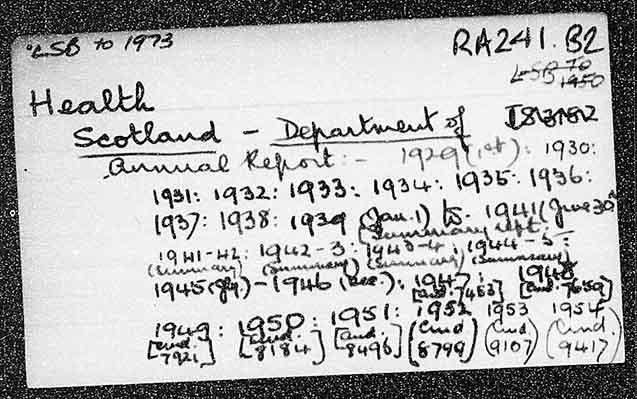 LSB to 1973
RA241.B2
LSB to 1950
Health
Scotland - Department of
Annual Report:- 1929(1st): 1930:
1931: 1932: 1933: 1934: 1935: 1936:
1937: 1938: 1939 (Jan.1) to 1941 (June 30th
Summary rept.
1941-42: 1942-3: 1943-4: 1944-5:
(Summary) (Summary) (Summary) (Summary)
1945(Jy.)-1946 (Dec.): 1947: 1948
[Cmd.7453] [Cmd.7659]
1949: 1950: 1951: 1952 1953 1954
[Cmd. 7921] [Cmd. 8184] [Cmd. 8496] (Cmd 8799) (Cmd 9107) (Cmd. 9417)